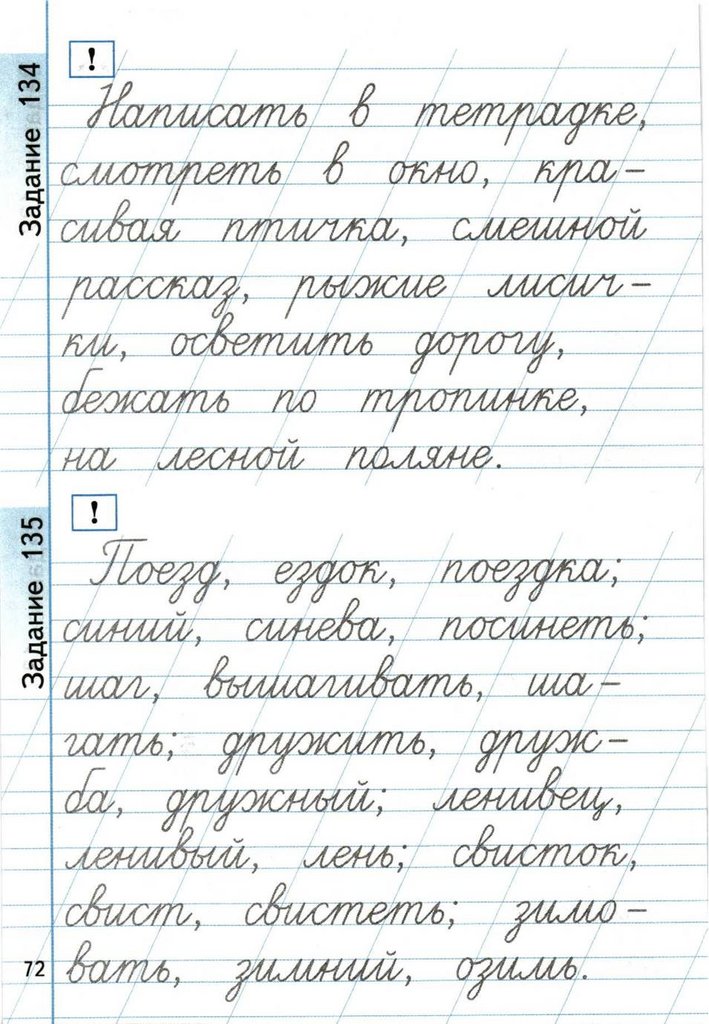 Задание 134
!
Написать в тетрадке,
смотреть в окно, кра-
сивая птичка, смешной
рассказ, рыжие лисич-
ки, осветить дорогу,
бежать по тропинке,
на лесной поляне.
Задание 135
!
Поезд, ездок, поездка;
синий, синева, посинеть;
шаг, вышагивать, ша-
гать; дружить, друж-
ба, дружный; ленивец,
ленивый, лень; свисток,
свист, свистеть; зимо-
вать, зимний, озимь.
72